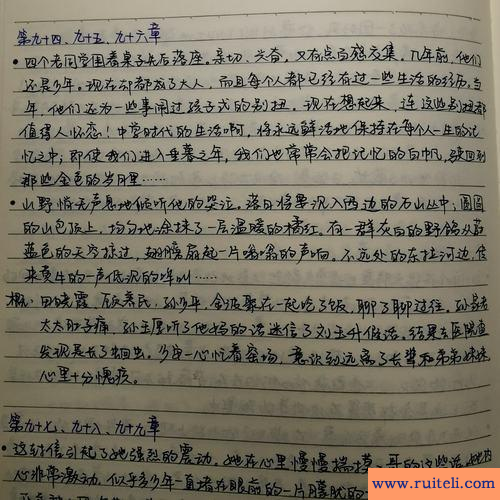 第九十四、九十五、九十六章
• 四个老同学围着桌子先后落座。亲切、兴奋,又有点百感交集。几年前,他们
还是少年。现在却都成了大人,而且每个人都已经有过一些生活的经历。当
年,他们还为一些事闹过孩子式的别扭。现在想起来,连这些别扭都
值得人怀恋!中学时代的生活啊,将永远鲜活地保持在每个人一生的记
忆之中;即使我们进入垂暮之年,我们也常常会把记忆的白帆,驶回到
那些金色的岁月里……
• 山野悄无声息地倾听他的哭泣。落日将要沉入西边的万山丛中;圆圆
的山包顶上,均匀地涂抹了一层温暖的橘红。有一群灰白的野鸽从蓝
蓝色的天空掠过,翅膀扇起一片嗡嗡的声响。不远处的东拉河边,传
来黄牛的一声低沉的哞叫……
概:田晓霞、顾养民、孙少平、金波聚在一起吃了饭,聊了聊过往。孙
太太肚子痛,孙玉厚听了他妈的话迷信了刘玉升假话。结果去医院查
发现是长了蛔虫。少安一心忙着窑场,意识到远离了长辈和弟弟妹妹
心里十分愧疚。
第九十七、九十八、九十九章
• 这封信引起了她强烈的震动。她在心里慢慢揣摸
心非常激动。似乎多少年一直堵在眼前的一片朦胧的
www.ruiteli.com